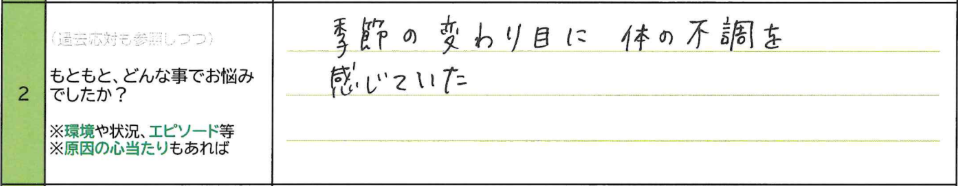 2
（過去応対も参照しつつ）
もともと、どんな事でお悩み
でしたか？
※環境や状況、エピソード等
※原因の心当たりもあれば
季節の変わり目に 体の不調を
感じていた